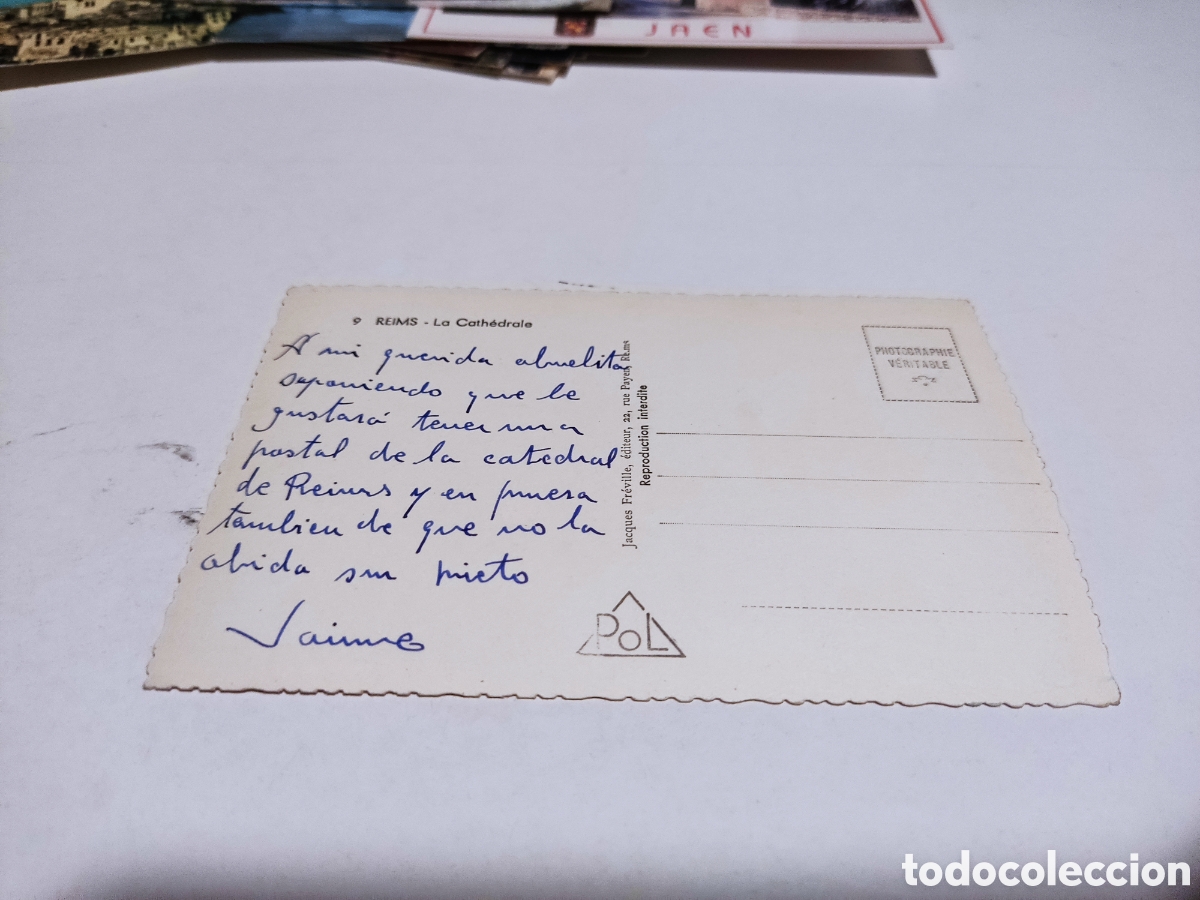 JAEN
9 REIMS - La Cathédrale
A mi querida abuelita
suponiendo que le
gustará tener una
postal de la catedral
de Reims y en prueba
tambien de que no la
olvida su nieto
Jaime
Jacques Fréville, éditeur, 22, rue Payen, Reims
Reproduction interdite
PHOTOGRAPHIE
VÉRITABLE
POL
todocoleccion